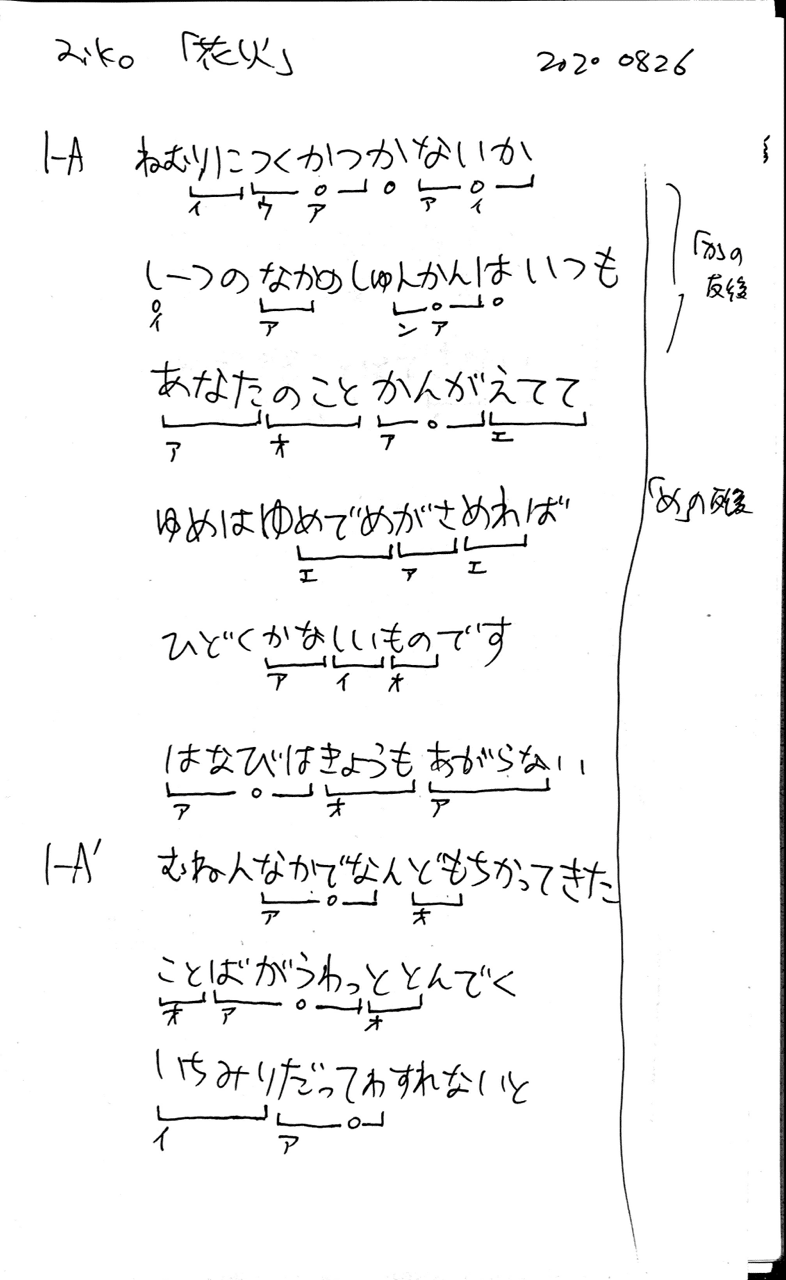 aiko 「花火」 2020 0826
1-A ねむりにつくかつかないか
イ ウ ア ア イ
しーつのなかのしゅんかんはいつも
イ ア ン ア
「か」の
反復
あなたのことかんがえてて
ア オ ア エ
ゆめはゆめでめがさめれば
エ ア エ
「め」の反復
ひどくかなしいものです
ア イ オ
はなびはきょうもあがらない
ア オ ア
1-A' むねんなかでなんどもちかってきた
ア オ
ことばがうわっととんでく
オ ア オ
いちみりだってわすれないと
イ ア